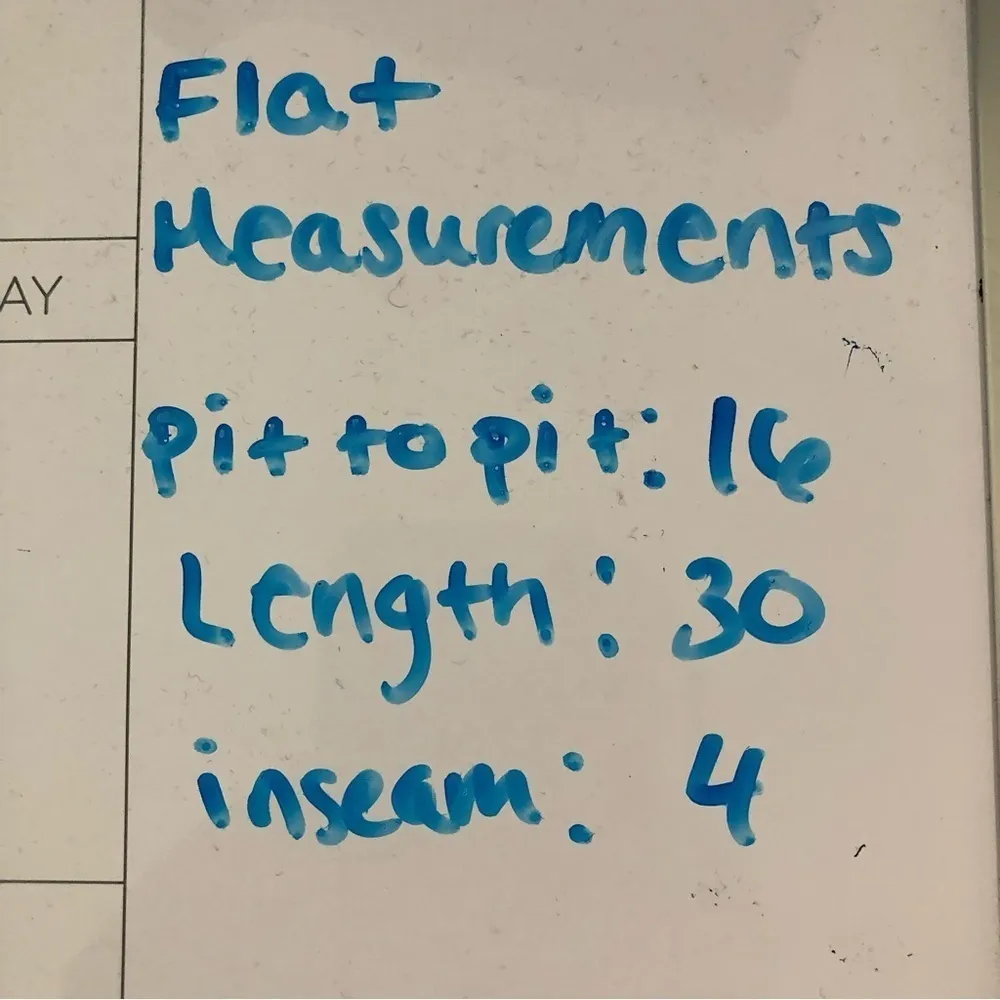 AY
Flat
Measurements
pit to pit: 16
Length: 30
inseam: 4